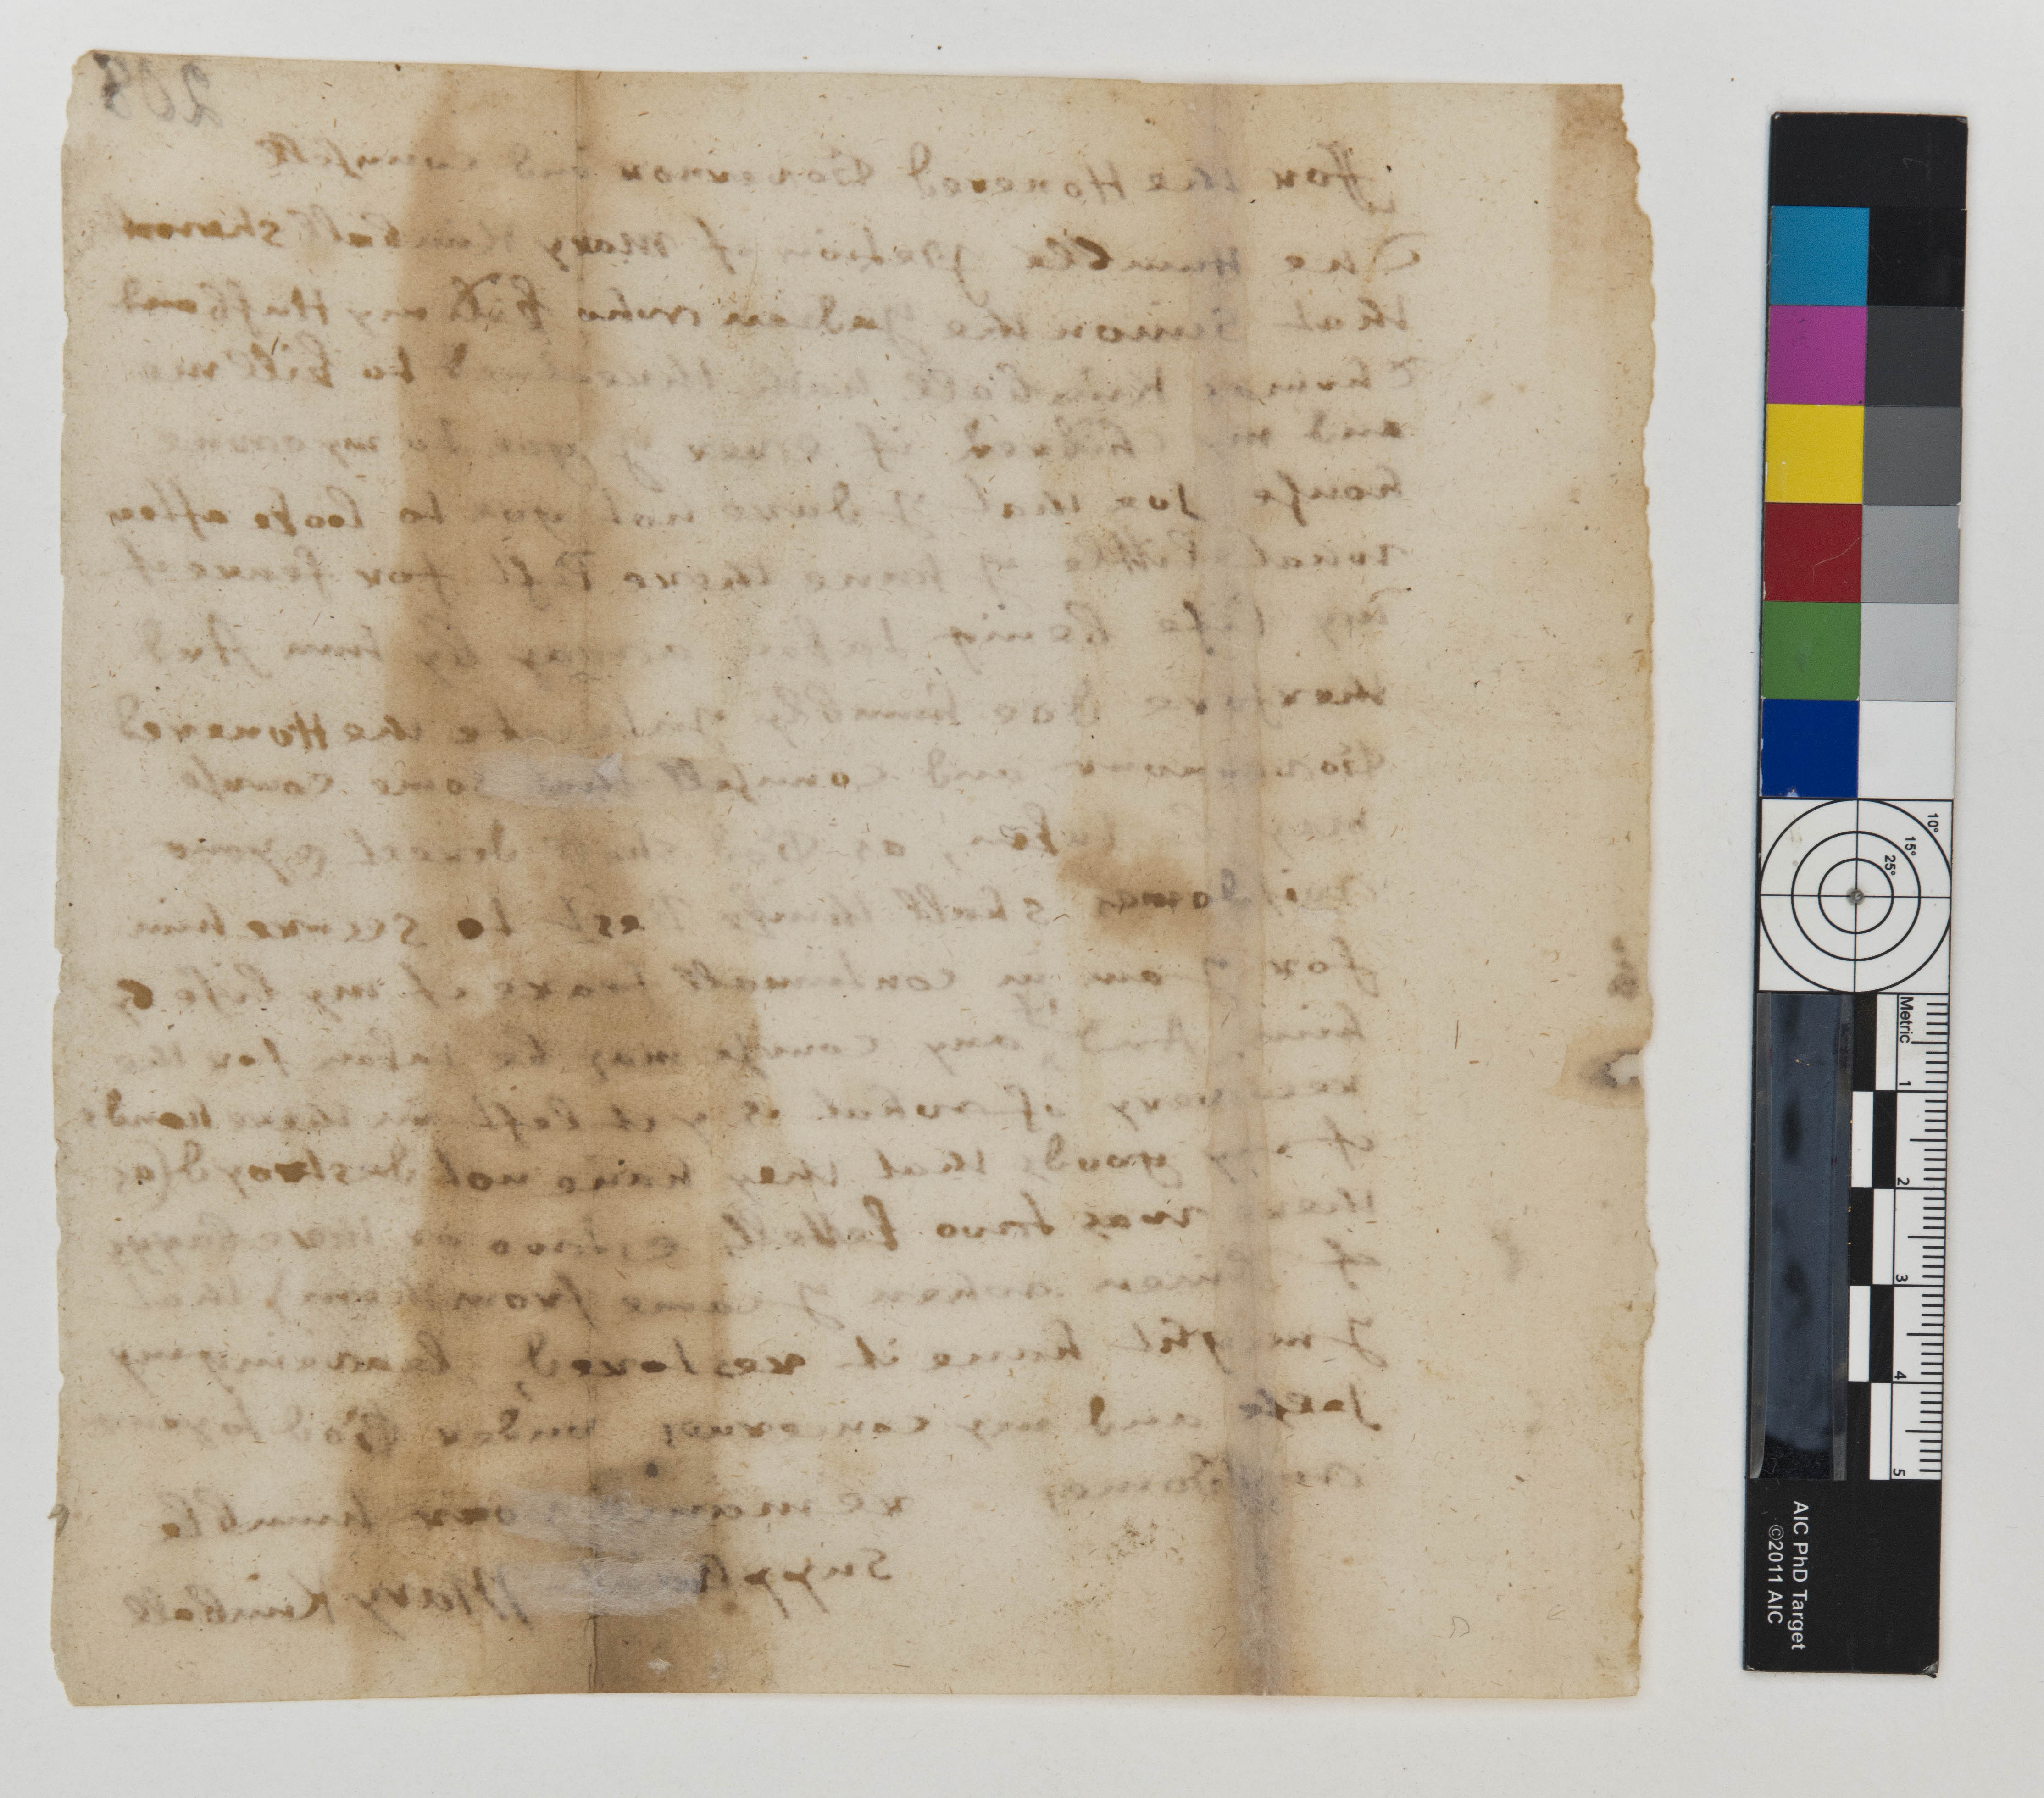 208
ffor the Honered Governor and counsell
The Humble petion of Mary Kimball sheweth
that Simon the Indian who kild my Husband
Thomas Kimball hath threatned to kill me
and my children if ever I goe to my owne
house soe that I dare not goe to looke after
what little I have there left for feare of
my life being taken away by him And
therfore doe humbly intreate the Honered
Governour and counsell that some course
may taken, as God shall derect & youre
wisdomes shall thinke best to secure him
for I am in continuall feare of my life by
him, And, any course may be taken for the
recovery of what is yet left in there hands
of my goods that they have not destroyd (as
there was two kettells & two or three baggs
of linen when I came from them) that
I might have it restored, leaveing my
selfe and my concernes under God to youre
wisdomes remaine your humble
Suppliant Mary Kimball
10°
15°
25°
Metric
1
2
3
4
5
AIC PhD Target
©2011 AIC